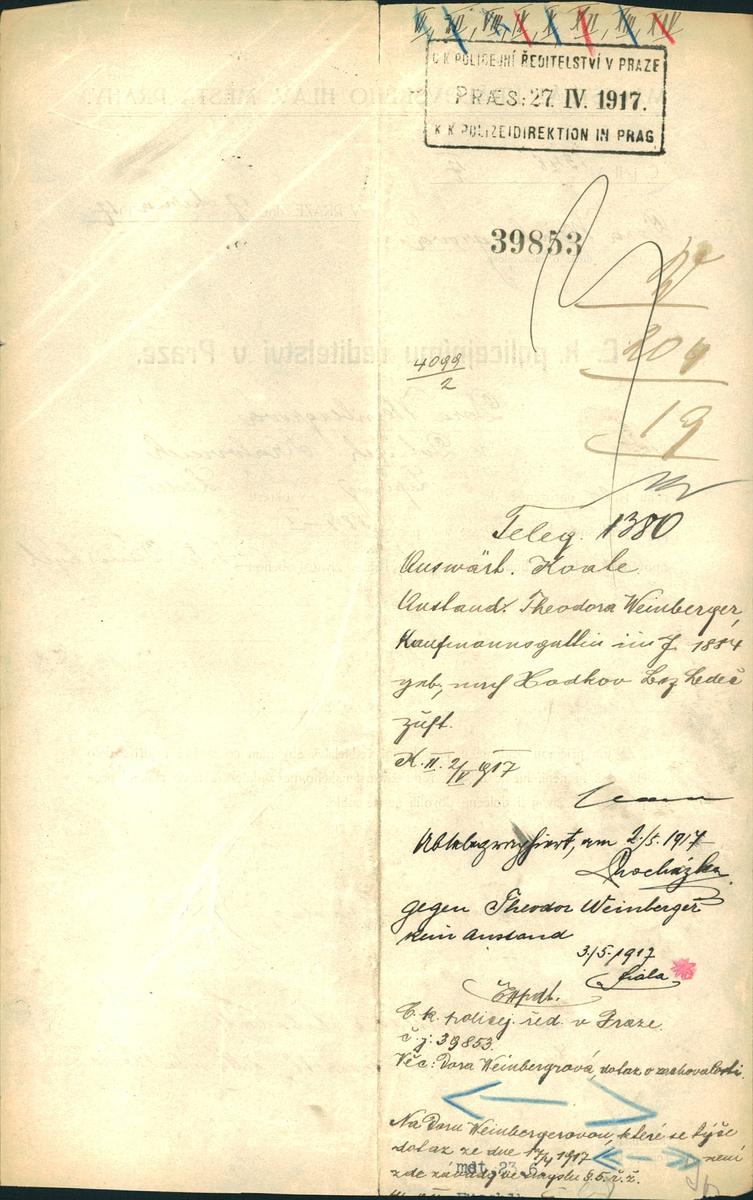 VI, VII, VIII, IX, X, XII, XIII, XIV
C.K POLICEJNÍ ŘEDITELSTVÍ V PRAZE
PRÆS: 27. IV. 1917.
K.K POLIZEIDIREKTION IN PRAG
39853
4099
2
209
19
Teleg. 1380
Auswärt.
Anstand: Theodora Weinberger,
Kaufmannsgattin im J. 1884
geb, nach Hodkov Bez Ledeč
zust.
K. II. 2/V 1917
Abtelegraphiert, am 2./5. 1917
Procházka
gegen Theodor Weinberger
kein Anstand
3./5. 1917
Fiala
Expdt.
C. k. policej. řed. v Praze.
č. j: 39853.
Věc: Dora Weinbergrová, dotaz o zachovalosti.
Na Doru Weinbergerovou, které se týče
dotaz ze dne 17/4 1917 není
zde závady ve smyslu § 5. ř. ž.
mdt. 23. 6.